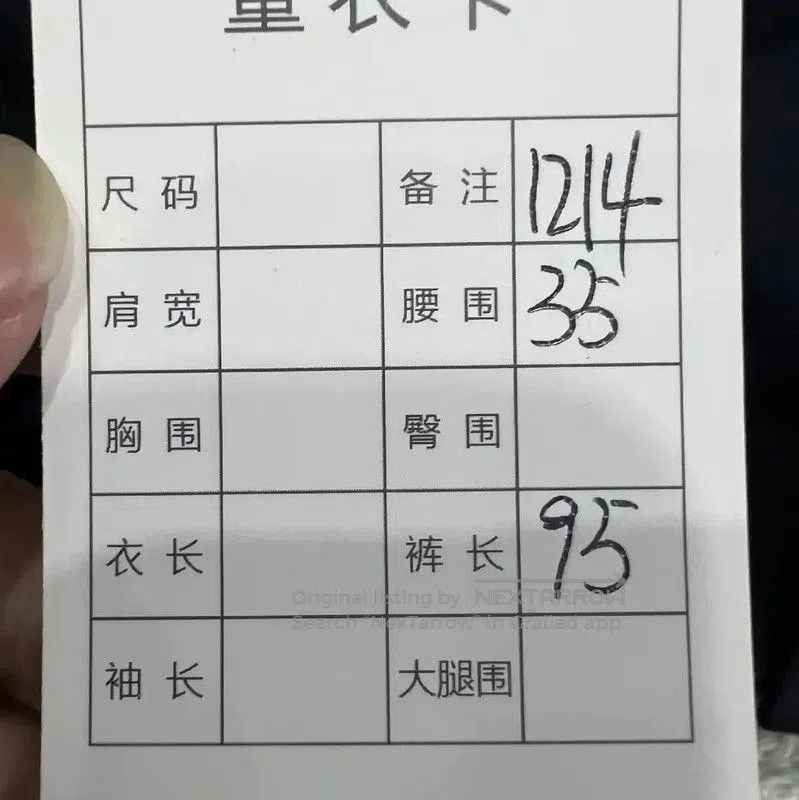 量衣卡
尺码 备注 1214
肩宽 腰围 35
胸围 臀围
衣长 裤长 95
Original listing by NEXTARROW
Search "NexTarrow" in Grailed app.
袖长 大腿围